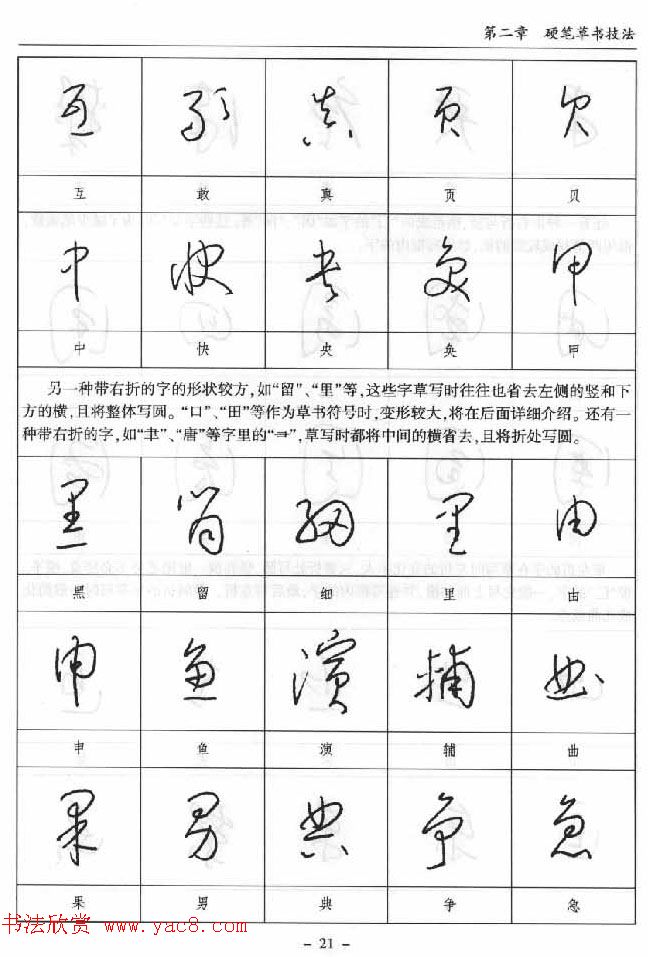 第二章　硬笔草书技法
互 敢 真 页 贝
中 快 央 奂 甲
另一种带右折的字的形状较方，如“留”、“里”等，这些字草写时往往也省去左侧的竖和下
方的横，且将整体写圆。“口”、“田”等作为草书符号时，变形较大，将在后面详细介绍。还有一
种带右折的字，如“聿”、“唐”等字里的“⇒”，草写时都将中间的横省去，且将折处写圆。
黑 留 细 里 由
申 鱼 演 辅 曲
果 男 典 争 急
书法欣赏 www.yac8.com
- 21 -